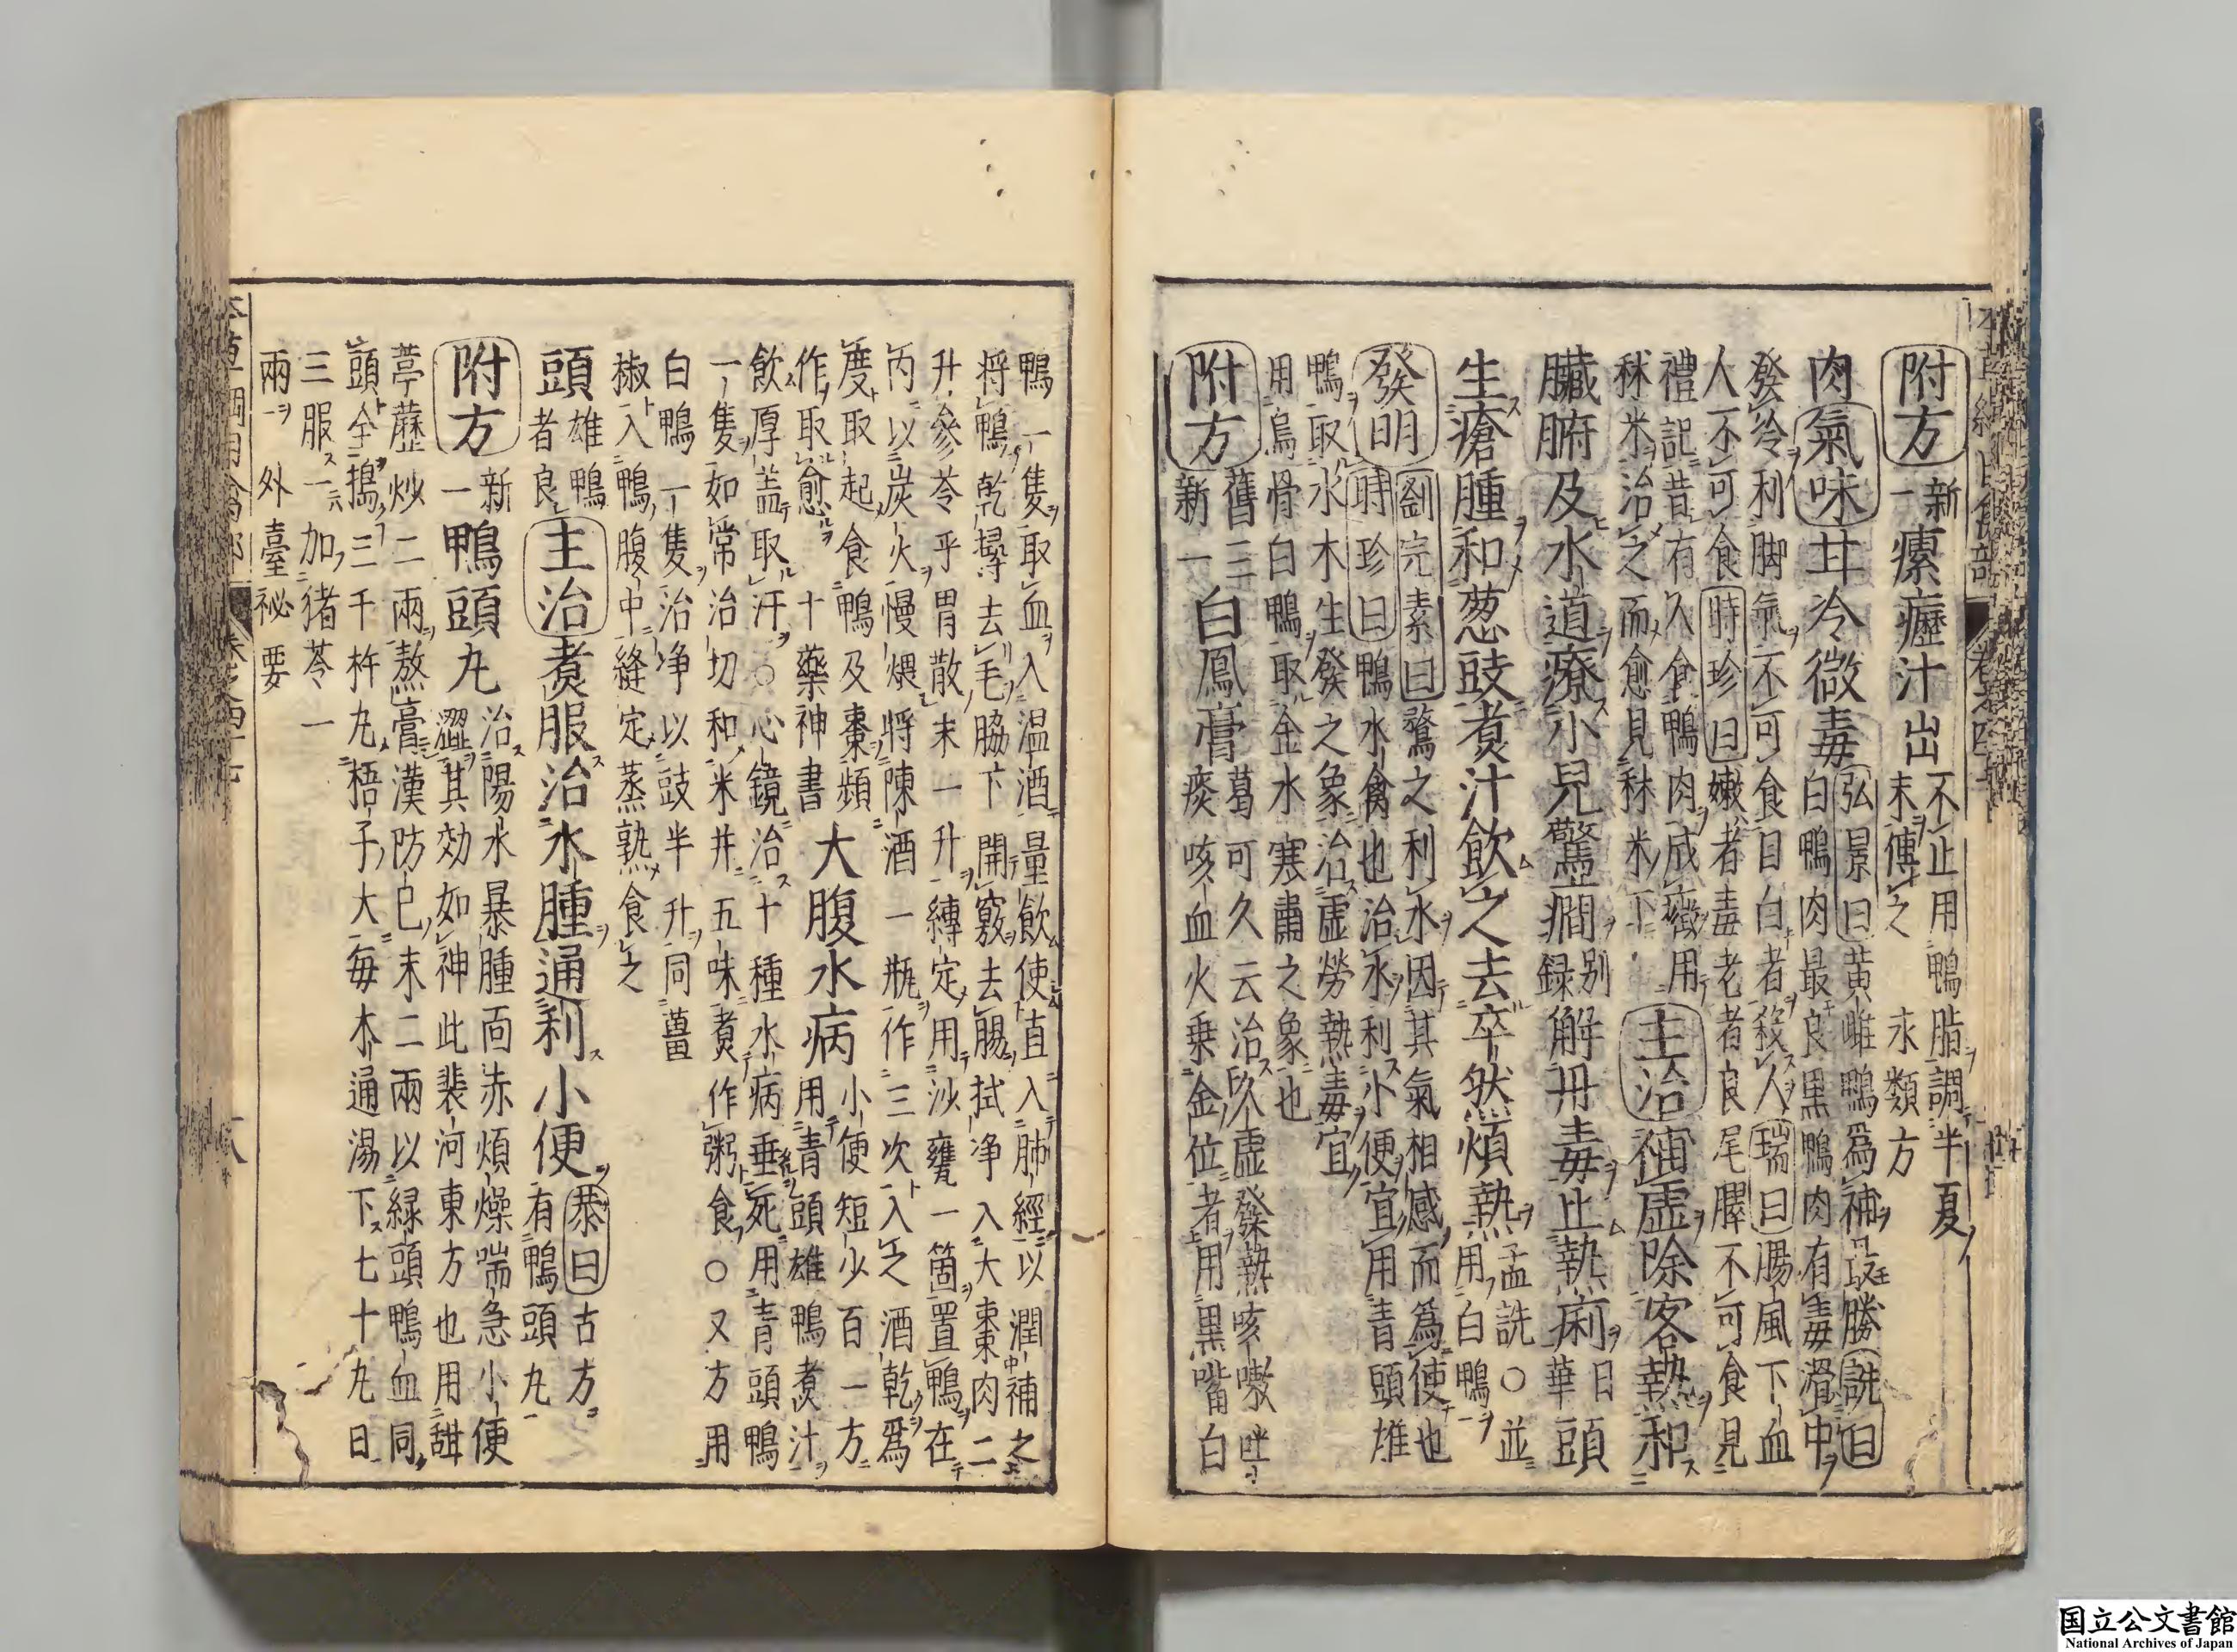 附方新一瘰癧汁出不止用鴨脂調半夏末傅之 永類方
肉氣味甘冷微毒弘景曰黃雌鴨爲補最勝詵曰白鴨肉最良黒鴨肉有毒滑中
發冷利脚氣不可食目白者殺人瑞曰腸風下血人不可食時珍曰嫩者毒老者良尾脽不可食見
禮記昔有久食鴨肉成癥用秫米治之而愈見秫米下 主治補虛除客熱和
臟腑及水道療小兒驚癇別録解丹毒止熱痢日華頭
生瘡腫和葱豉煮汁飲之去卒然煩熱孟詵○並用白鴨
發明劉完素曰鶩之利水因其氣相感而爲使也時珍曰鴨水禽也治水利小便宜用青頭雄
鴨取水木生發之象治虛勞熱毒宜用烏骨白鴨取金水寒肅之象也
附方舊三新一白鳳膏葛可久云治久虛發熱咳嗽吐痰咳血火乗金位者用黒嘴白
鴨一隻取血入温酒量飲使直入肺經以潤補之將鴨乾撏去毛脇下開竅去腸拭净入大棗肉二
升參苓平胃散末一升縛定用沙甕一箇置鴨在内以炭火慢煨將陳酒一瓶作三次入之酒乾爲
度取起食鴨及棗頻作取愈十藥神書 大腹水病小便短少百一方用青頭雄鴨煮汁
飲厚蓋取汗○心鏡治十種水病垂死用青頭鴨一隻如常治切和米并五味煮作粥食○又方用
白鴨一隻治净以豉半升同薑椒入鴨腹中縫定蒸熟食之
頭雄鴨者良主治煮服治水腫通利小便恭曰古方有鴨頭丸
附方新一鴨頭丸治陽水暴腫面赤煩燥喘急小便澀其効如神此裴河東方也用甜
葶藶炒二兩熬膏漢防已末二兩以緑頭鴨血同頭全搗三千杵丸梧子大毎木通湯下七十丸日
三服一加猪苓一兩 外臺祕要
国立公文書館
National Archives of Japan